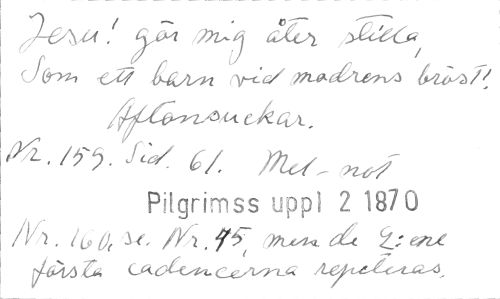 Jesu! gör mig åter stilla,
Som ett barn vid modrens bröst!
Aftonsuckar.
Nr. 159. Sid. 61. Mel-not
Pilgrimss uppl 2 1870
Nr. 160, se. Nr. 45, men de 2:ene
första cadencerna repeteras.